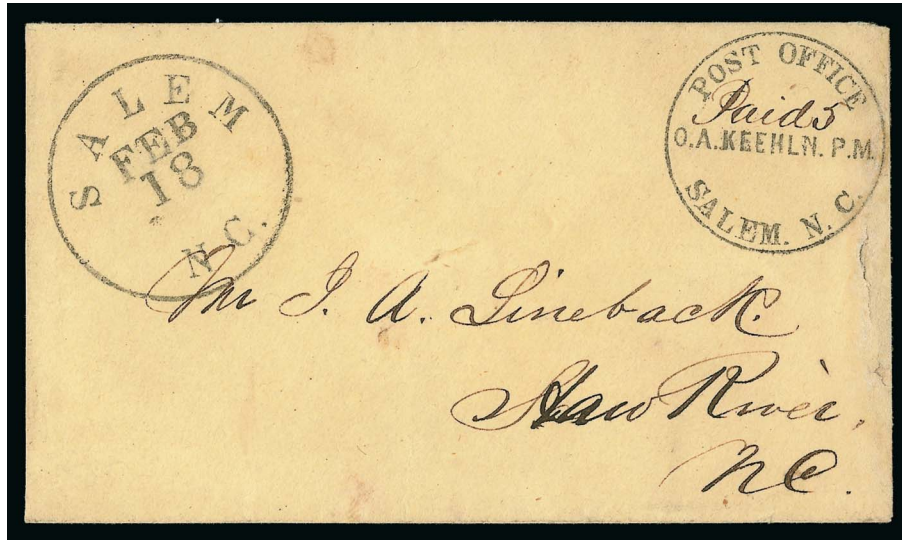 SALEM
FEB
18
N.C.
POST OFFICE
Paid 5
O.A. KEEHLN. P.M.
SALEM. N. C.
Mr J. A. Lineback.
Haw River,
NC.